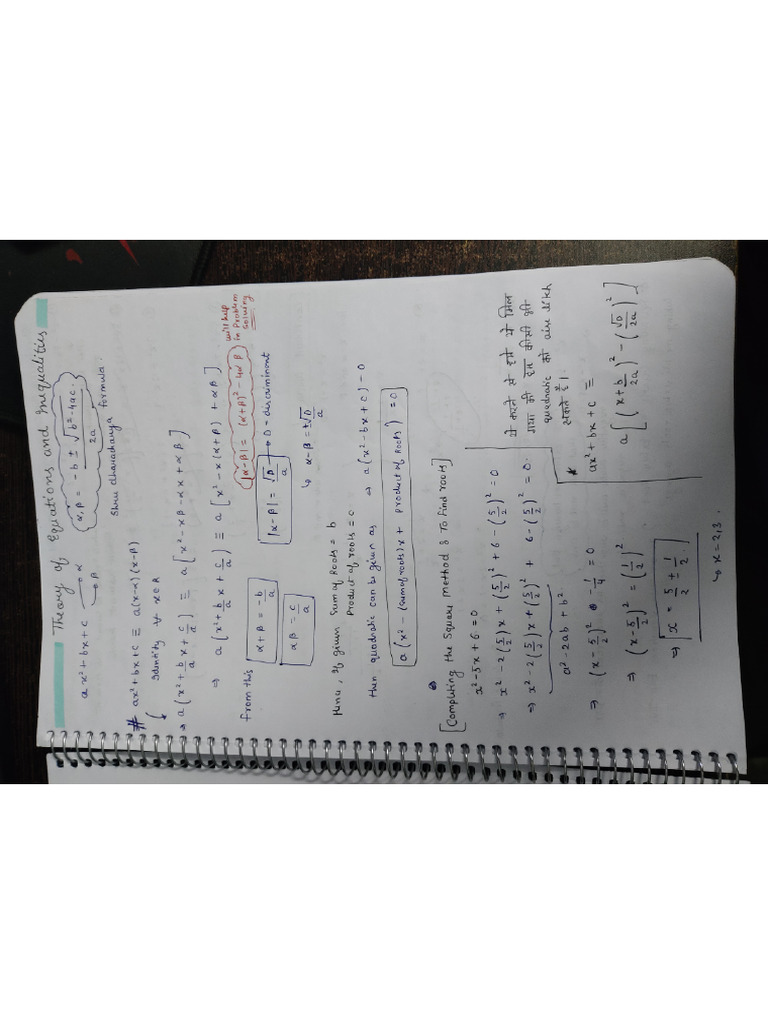 Theory of Equations and Inequalities
ax²+bx+c → α
→ β
α, β = -b ± √b²-4ac / 2a
Shree dharacharya formula.
# ax²+bx+c ≡ a(x-α)(x-β)
↳ Identity ∀ x∈R
→ a(x²+b/a x+c/a) ≡ a[x²-xβ-αx+αβ]
⇒ a(x²+b/a x+c/a) ≡ a[x²-x(α+β)+αβ]
from this
α+β = -b/a
αβ = c/a
|α-β| = √(α+β)²-4αβ
will help in Problem Solving
|α-β| = √D/a → D = discriminant
↳ α-β = ±√D/a
Hence, if given Sum of Roots = b
Product of roots = c
then quadratic can be given as ⇒ a(x²-bx+c)=0
a(x²-(sum of roots)x + product of Roots) = 0
[Completing the Square method & To find roots]
x²-5x+6=0
⇒ x²-2(5/2)x+(5/2)²+6-(5/2)²=0
⇒ x²-2(5/2)x+(5/2)²+6-(5/2)²=0.
a²-2ab+b².
⇒ (x-5/2)²-1/4=0
⇒ (x-5/2)²=(1/2)²
⇒ x = 5/2 ± 1/2.
↳ x=2,3.
ये करने से हमे ये मिल
गया की हम किसी भी
quadratic को aise likh
सकते है।
* ax²+bx+c ≡
a[(x+b/2a)²-(√D/2a)²]